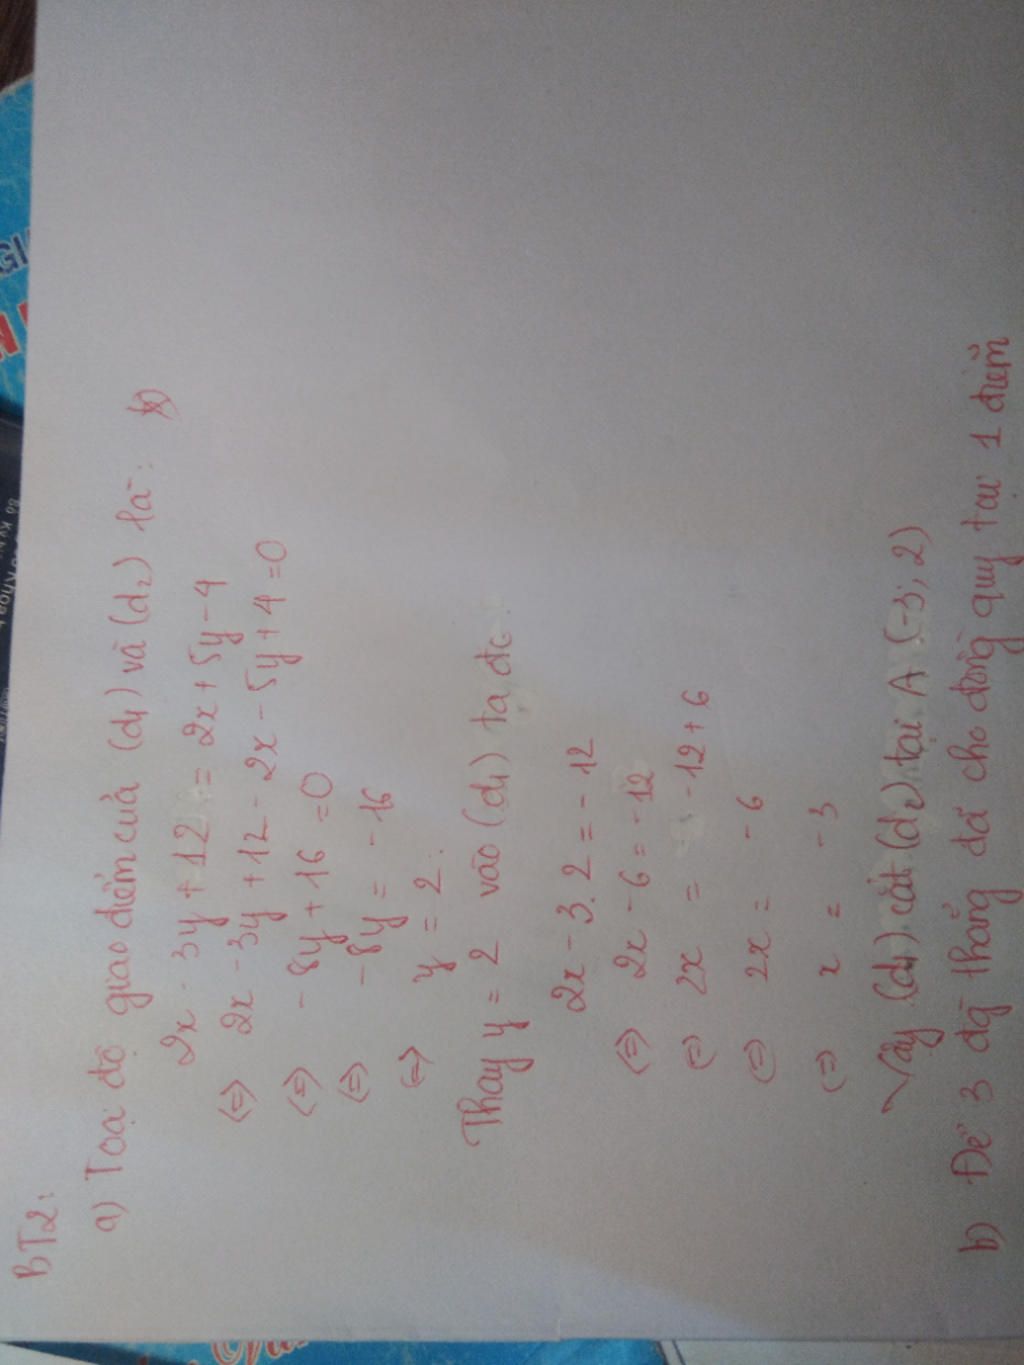 BT2:
a) Toạ độ giao điểm của (d1) và (d2) là:
2x - 3y + 12 = 2x + 5y - 4
(=) 2x - 3y + 12 - 2x - 5y + 4 = 0
(=) - 8y + 16 = 0
(=) -8y = -16
(=) y = 2.
Thay y = 2 vào (d1) ta đc
2x - 3.2 = -12
(=) 2x - 6 = -12
(=) 2x = -12 + 6
(=) 2x = -6
(=) x = -3
Vậy (d1) cắt (d2) tại A (-3; 2)
b) Để 3 đg thẳng đã cho đồng quy tại 1 điểm